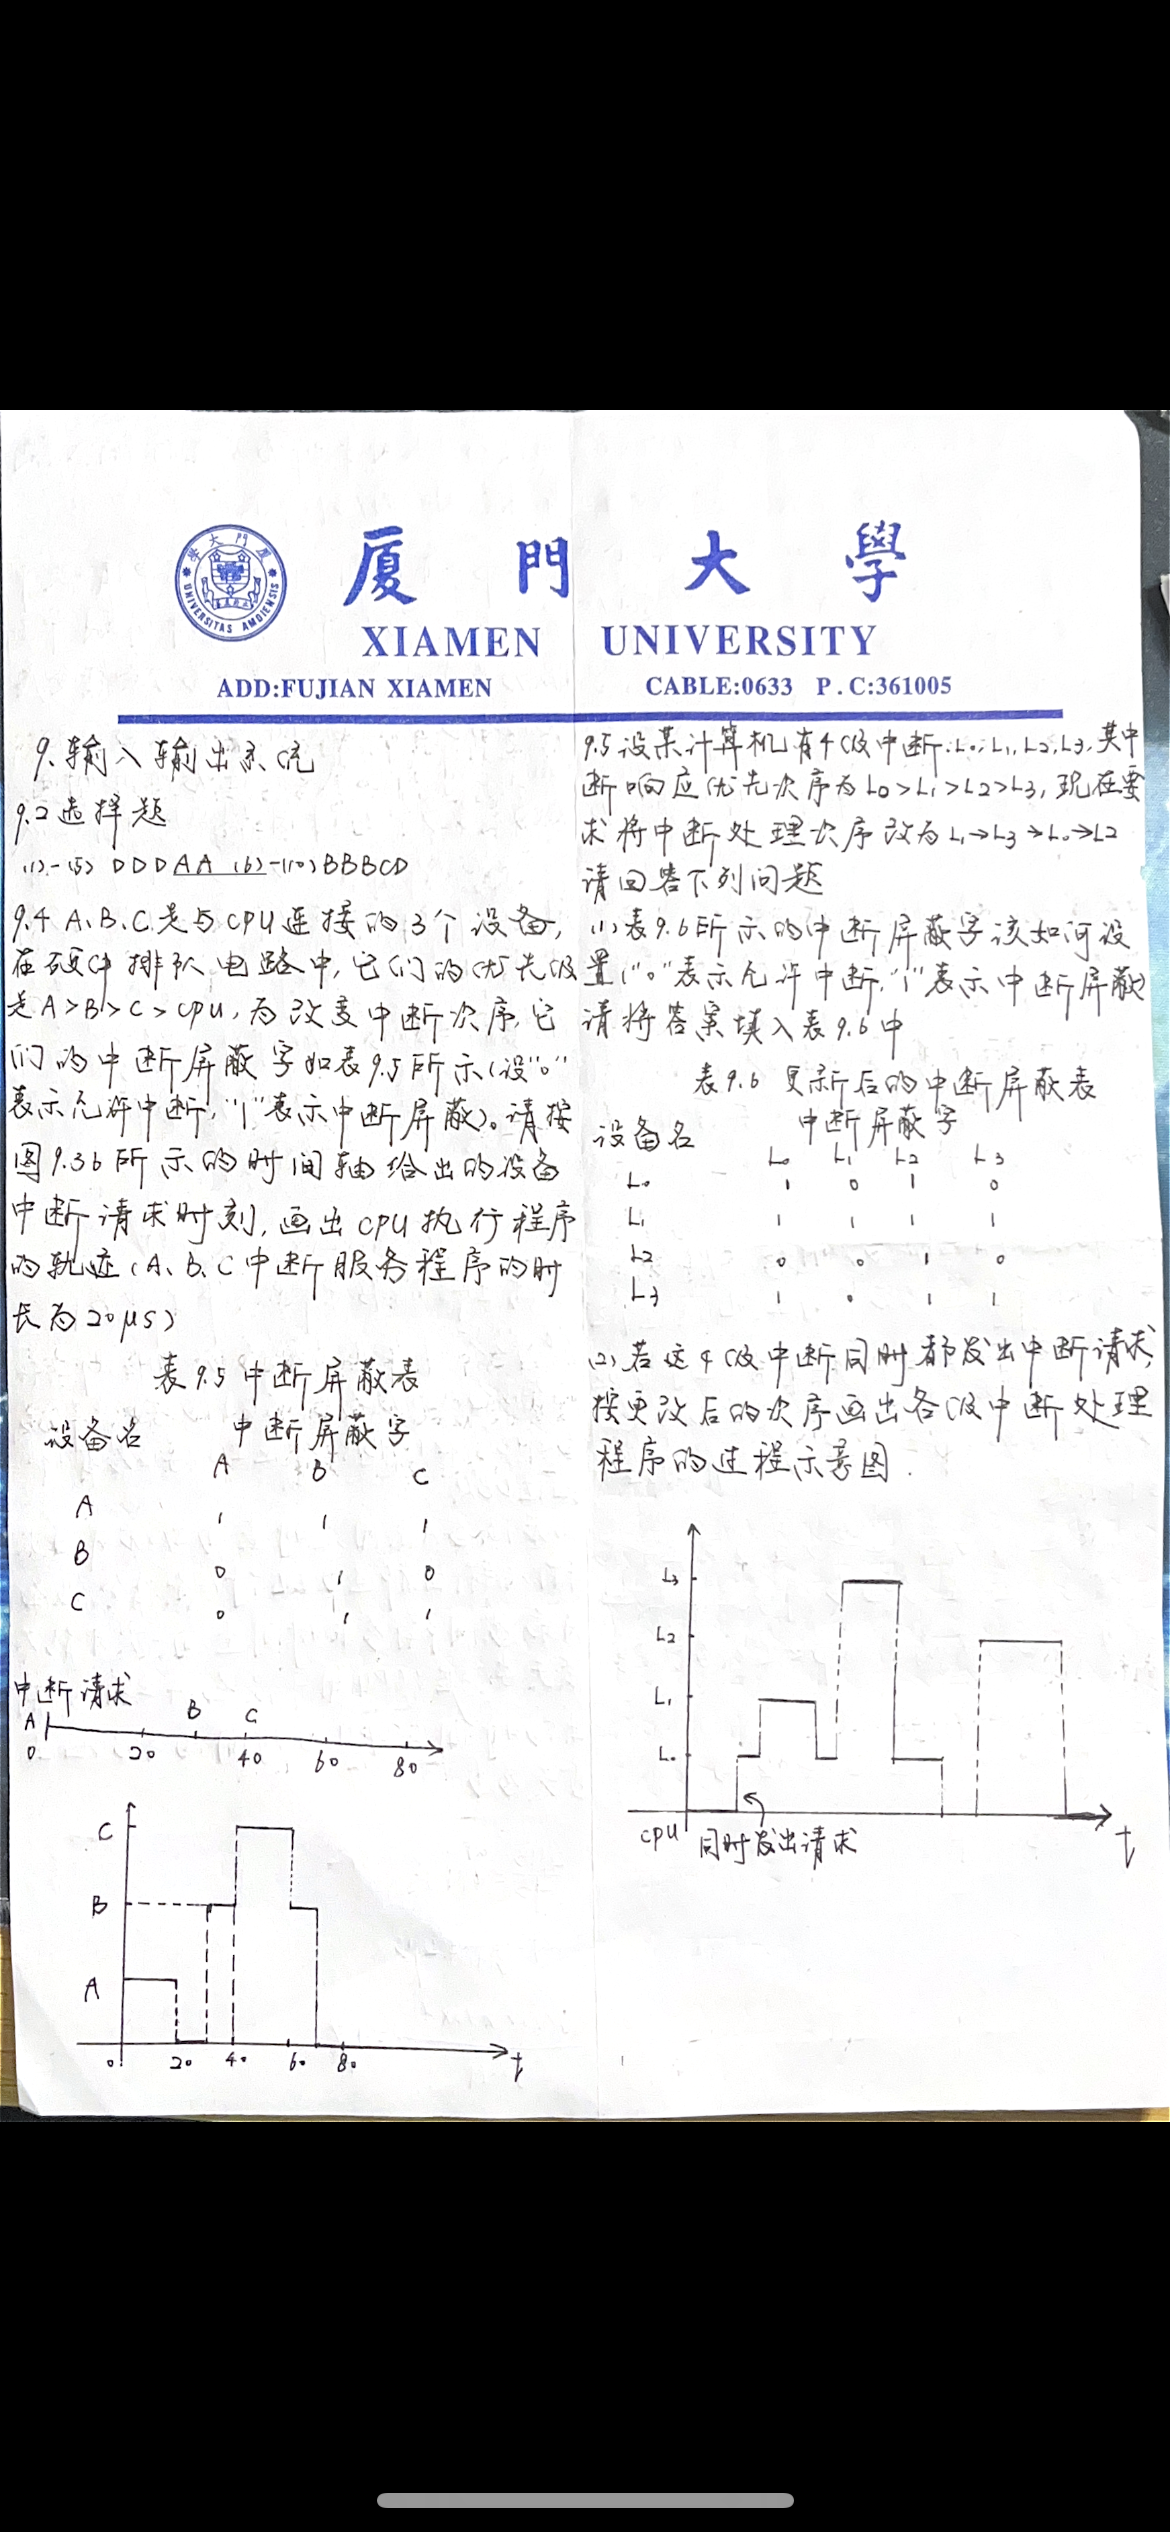 厦門大學
XIAMEN UNIVERSITY
ADD:FUJIAN XIAMEN CABLE:0633 P.C:361005
UNIVERSITAS AMOIENSIS
9.输入输出系统
9.2选择题
(1)-(5) DDDAA (6)-(10)BBBCD
9.4 A、B、C是与CPU连接的3个设备,
在硬件排队电路中,它们的优先级
是A>B>C>CPU,为改变中断次序,它
们的中断屏蔽字如表9.5所示(设"0"
表示允许中断,"1"表示中断屏蔽)。请按
图9.36所示的时间轴给出的设备
中断请求时刻,画出CPU执行程序
的轨迹(A、B、C中断服务程序的时
长为20μs)
表9.5中断屏蔽表
设备名 中断屏蔽字
A B C
A 1 1 1
B 0 1 0
C 0 1 1
中断请求
A B C
0 20 40 60 80
C
B
A
0 20 40 60 80 t
9.5设某计算机有4级中断:L0,L1,L2,L3,其中
断响应优先次序为L0>L1>L2>L3,现在要
求将中断处理次序改为L1→L3→L0→L2
请回答下列问题
(1)表9.6所示的中断屏蔽字该如何设
置("0"表示允许中断,"1"表示中断屏蔽)
请将答案填入表9.6中
表9.6 更新后的中断屏蔽表
设备名 中断屏蔽字
L0 L1 L2 L3
L0 1 0 1 0
L1 1 1 1 1
L2 0 0 1 0
L3 1 0 1 1
(2)若这4级中断同时都发出中断请求,
按更改后的次序画出各级中断处理
程序的过程示意图.
L3
L2
L1
L0
CPU 同时发出请求 t